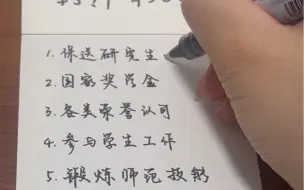 1. 保送研究生
2. 国家奖学金
3. 各类荣誉认可
4. 参与学生工作
5. 锻炼师范技能